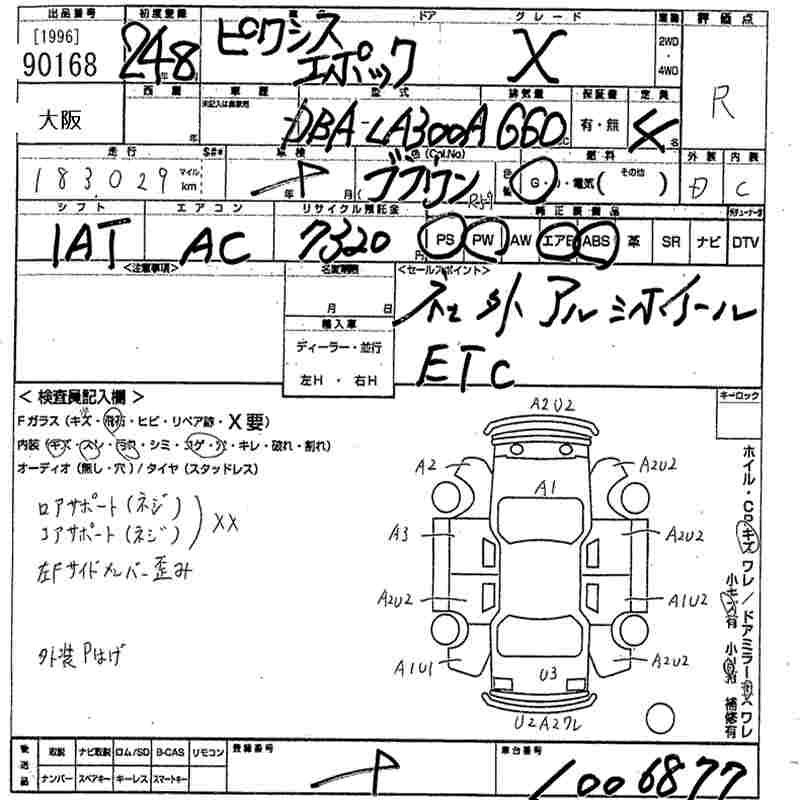 出品番号 初度登録 車名 ドア グレード 車歴 評価点
[1996]
90168
24 8
ピクシス
エポック
X
2WD
・
4WD
R
大阪
西暦 車歴 型式 排気量 保証書 定員
年
DBA-LA300A 660
有・無
4
走行 車検 色(Col.No) 燃料 外装 内装
183,029
マイル
km
年 月(
ブラウン
R59
G・ ・電気(その他 )
D C
シフト エアコン リサイクル預託金 純正装備品
IAT AC 7320
PS PW AW エアB ABS 革 SR ナビ DTV
<注意事項> 名変期限 <セールスポイント>
月 日
輸入車
ディーラー・並行
左H ・ 右H
社外アルミホイール
ETC
キーロック
< 検査員記入欄 >
Fガラス (キズ・飛石・ヒビ・リペア跡・X要)
内装 (キズ・スレ・ヨゴレ・シミ・コゲ・穴・キレ・破れ・割れ)
オーディオ (無し・穴) / タイヤ (スタッドレス)
ロアサポート(ネジ)
コアサポート(ネジ)
XX
左Fサイドメンバー歪み
外装Pはげ
A2U2
A2 A1 A2U2
A3 A2U2
A2U2 A1U2
A1U1 U3 A2U2
U2A2ワレ
ホイル・CDキズ ワレ / ドアミラーキズ ワレ
小キズ有 小凹有 補修有
後送品
取説 ナビ取説 ロム/SD B-CAS リモコン
ナンバー スペアキー キーレス スマートキー
登録番号
車台番号
1006877